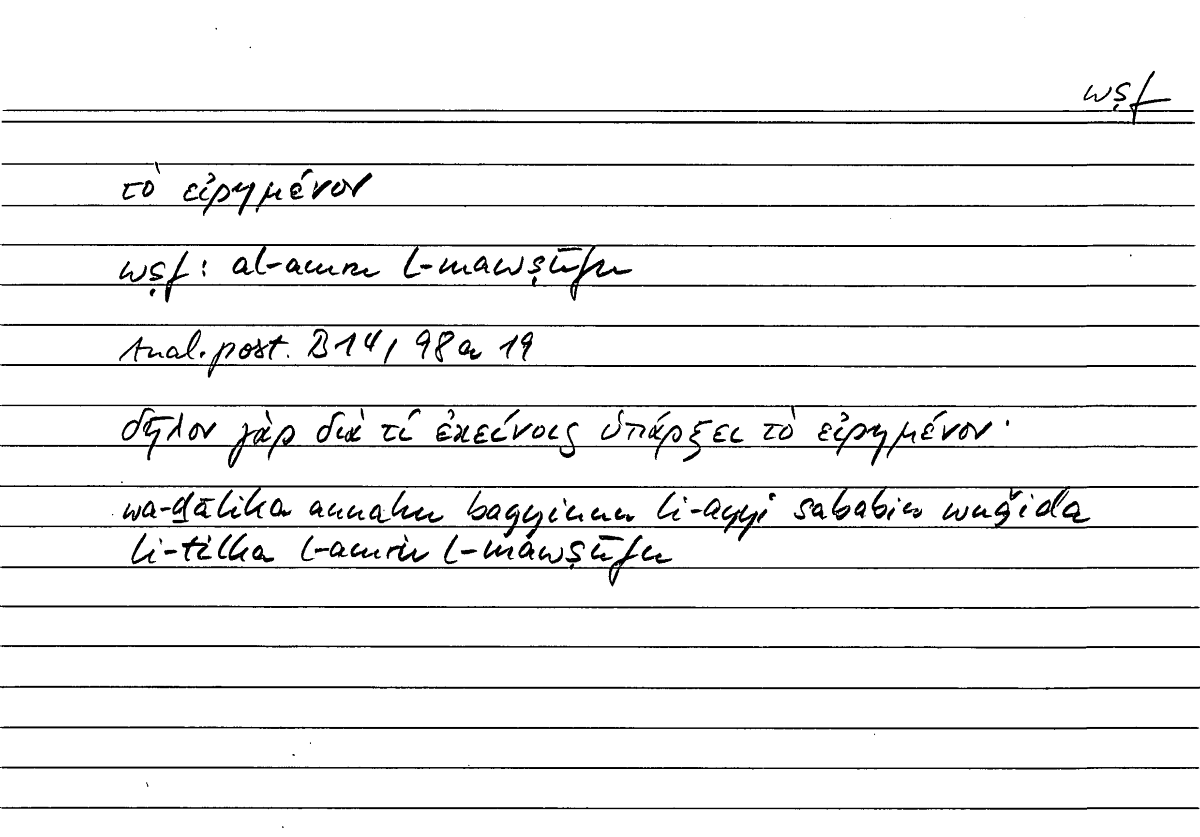 wṣf
τὸ εἰρημένον
wṣf: al-amru l-mawṣūfu
Anal. post. B14, 98a 19
δῆλον γὰρ διὰ τί ἐκείνοις ὑπάρξει τὸ εἰρημένον·
wa-ḏālika annahu bayyinun li-ayyi sababin wuǧida
li-tilka l-amru l-mawṣūfu